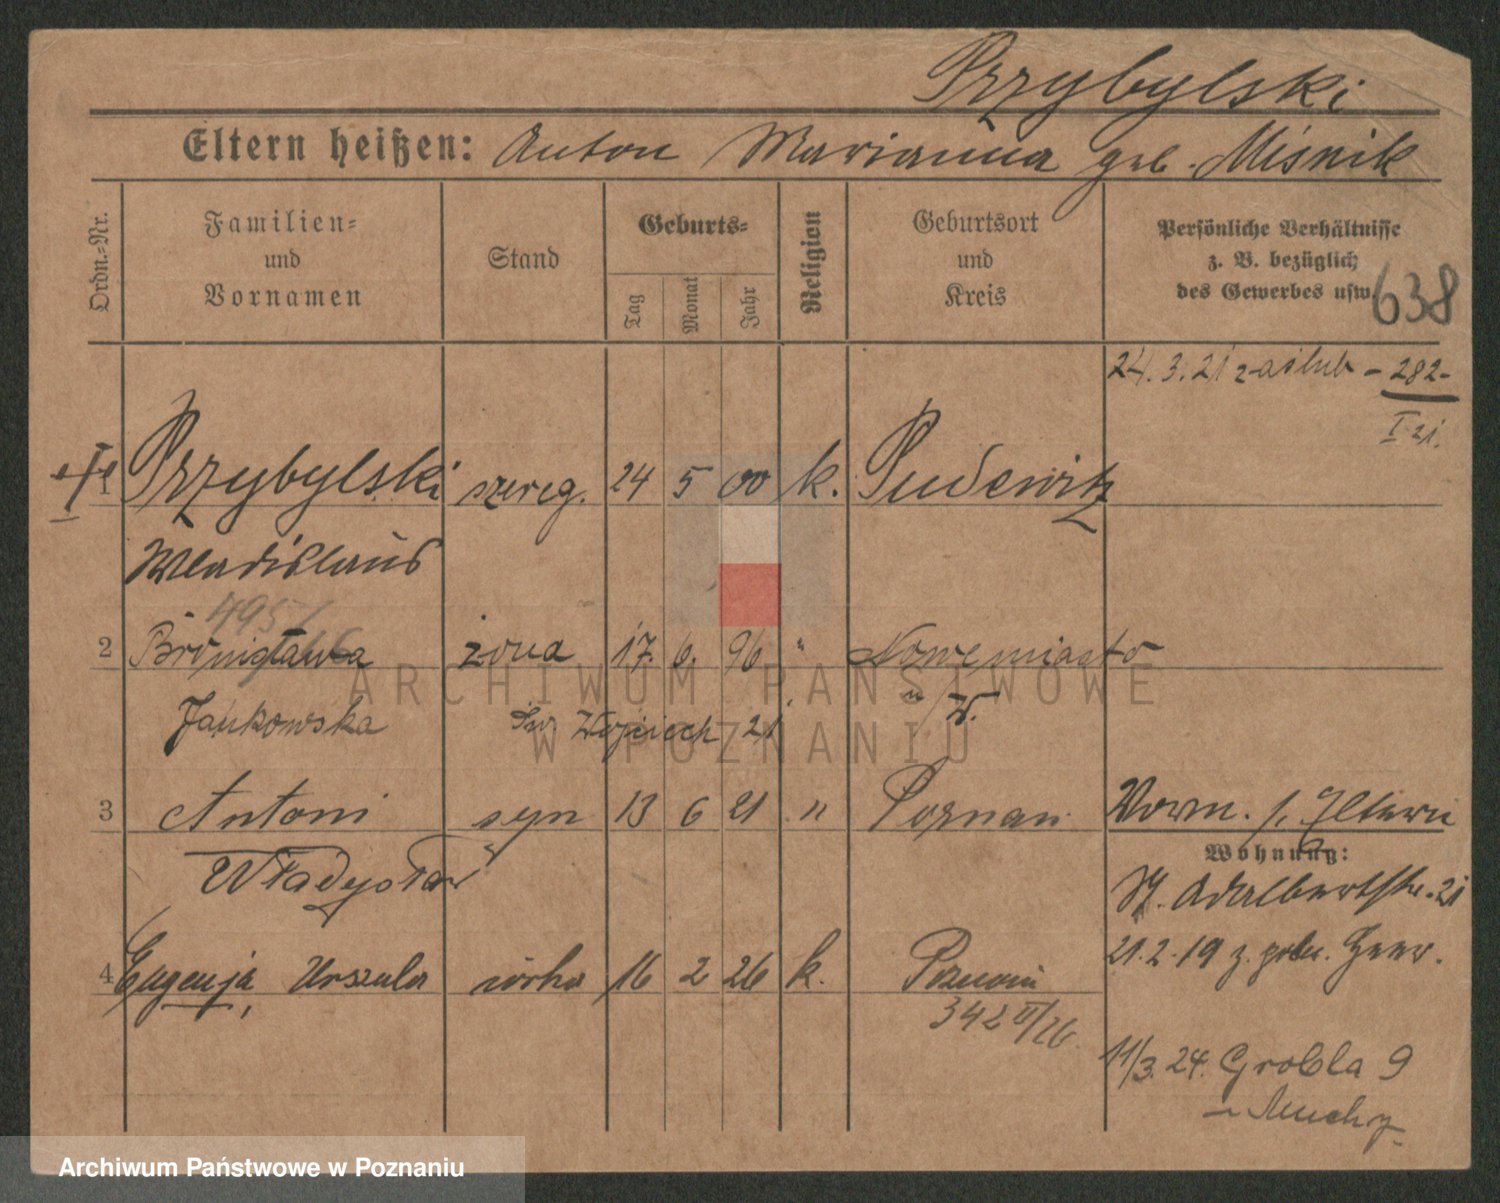 Przybylski
Eltern heißen: Anton Marianna geb. Miśnik
Ordn.-Nr.
Familien-
und
Vornamen
Stand
Geburts-
Tag
Monat
Jahr
Religion
Geburtsort
und
Kreis
Persönliche Verhältnisse
z. B. bezüglich
des Gewerbes usw.
638
24.3.21 zaślub - 282-
I 21.
1 Przybylski szereg. 24 5 00 k. Pudewitz
Wladislaus
4957
2 Bronisława żona 17. 6. 96 " Nowemiasto
Jankowska św Wojciech 21 n/W.
3 Antoni syn 13 6 21 " Poznań Worm. s. Eltern
Władysław
Wohnung:
St. Adalbertstr. 21
21.2.19 z.
4 Eugenja, Urszula córka 16 2 26 k. Poznań
342 II/26.
11/3.24. Grobla 9
ARCHIWUM PAŃSTWOWE
W POZNANIU
Archiwum Państwowe w Poznaniu